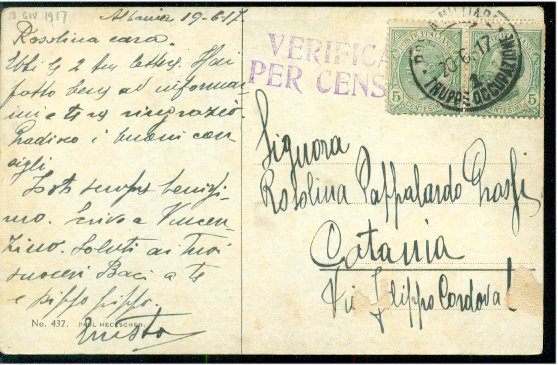 13 GIU 1917
Albania 19-6-17
Rosolina cara.
Ebbi le 2 tue lettere. Hai
fatto bene ad informar
mi e te ne ringrazio.
Gradisco i buoni con
sigli.
Io sto sempre
Scrivo a Vincen
zino. Saluti ai tuoi
suoceri Baci a te
e Pippo
No. 437. PAUL HECKSCHER.
VERIFICA
PER CENS
POSTE ITALIANE
5
5
MILITARE
20.6.17
TRUPPE OCCUPAZIONE
Signora
Rosolina Pappalardo Grassi
Catania
Via Filippo Cordova 1